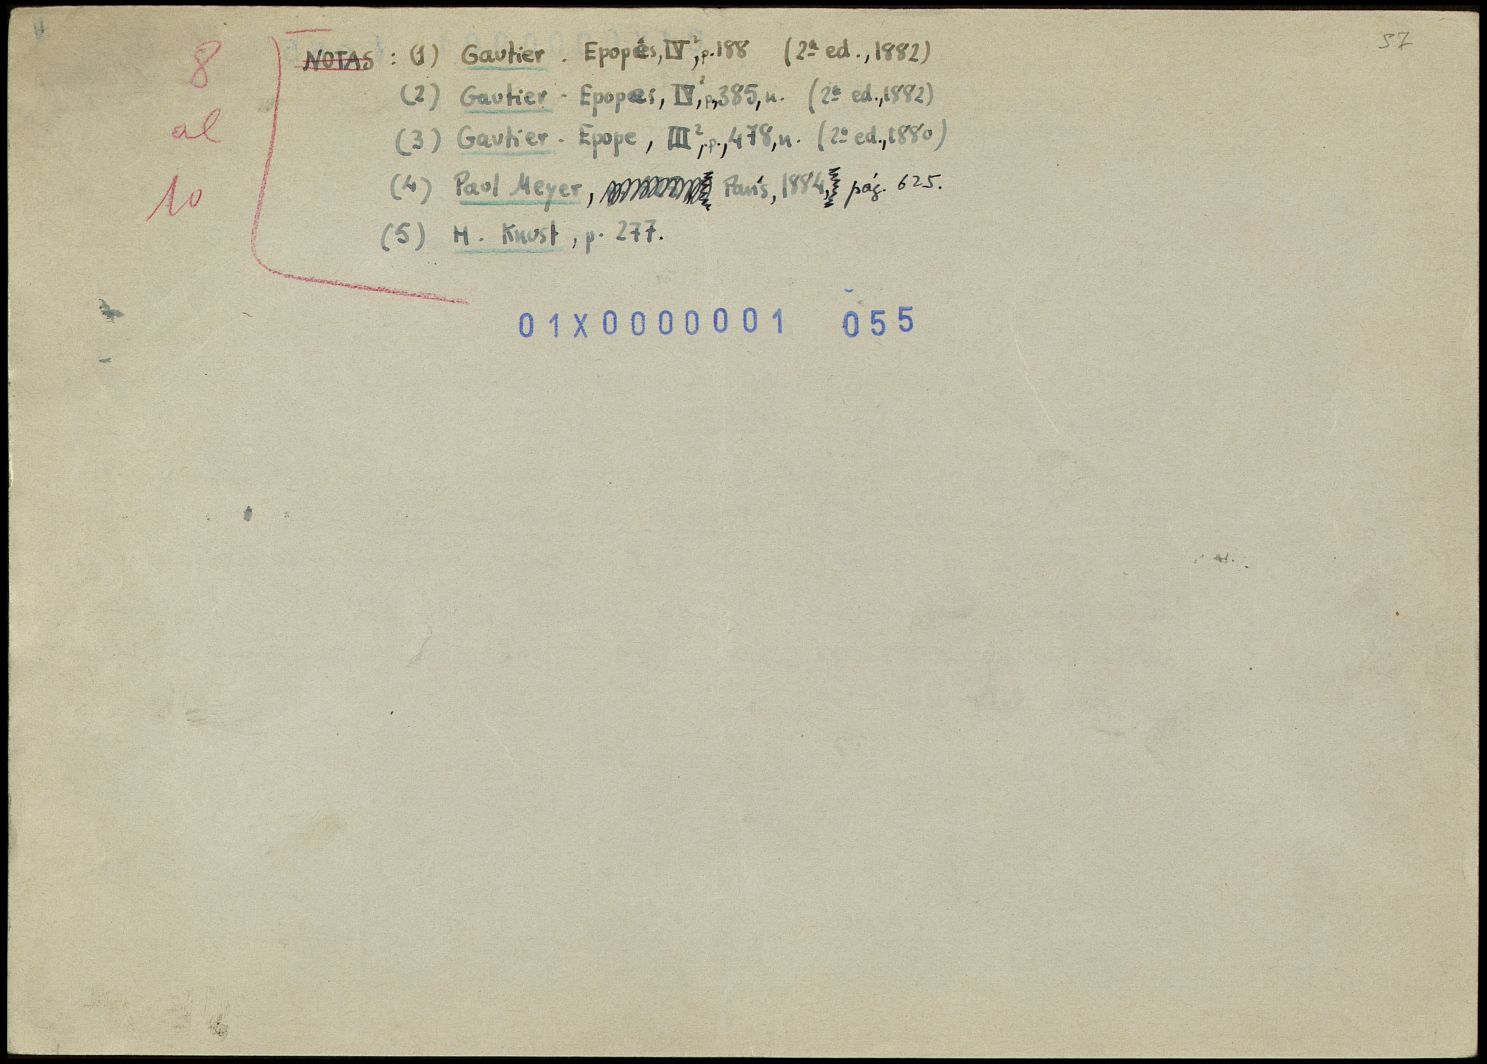 57
8
al
10
NOTAS : (1) Gautier . Epopées, IV², p. 188 (2ª ed., 1882)
(2) Gautier - Epopees, IV², p. 385, n. (2ª ed., 1882)
(3) Gautier - Epope, III², p., 478, n. (2ª ed., 1880)
(4) Paul Meyer, París, 1884, pág. 625.
(5) H. Knust, p. 277.
01X0000001 055